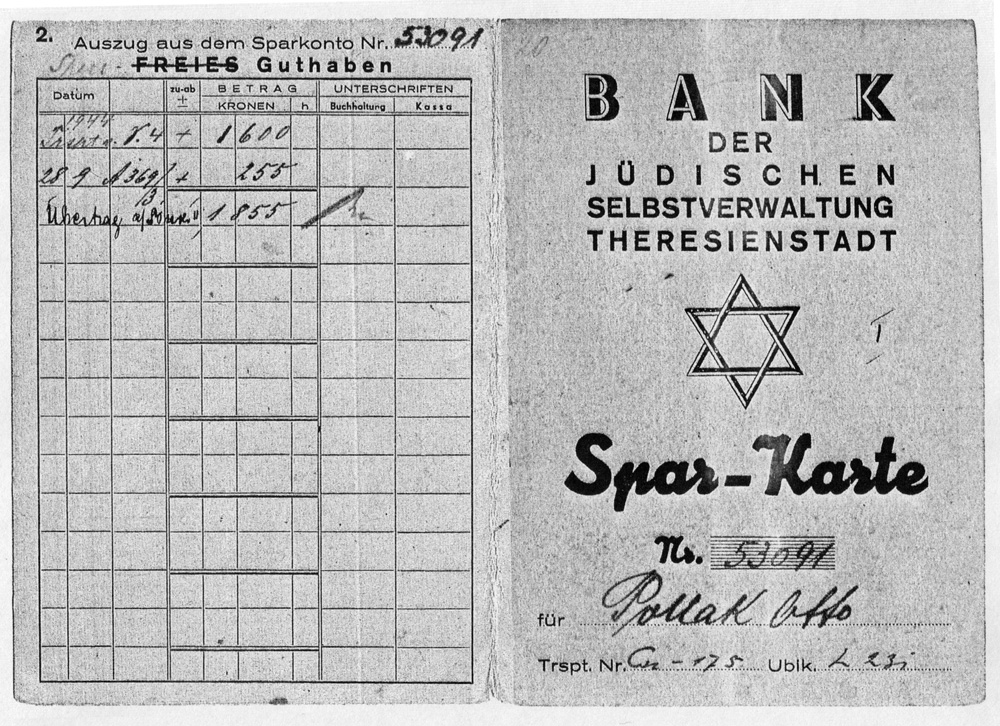 2.
Auszug aus dem Sparkonto Nr. 53091
FREIES Guthaben
Datum zu-ab ± BETRAG UNTERSCHRIFTEN
KRONEN h. Buchhaltung Kassa
1944
4 + 1600
28 9 A 369/3 + 255
Übertrag 1855
BANK
DER
JÜDISCHEN
SELBSTVERWALTUNG
THERESIENSTADT
I
Spar-Karte
Nr. 53091
für Pollak Otto
Trspt. Nr. - 175 Ubik. L 23